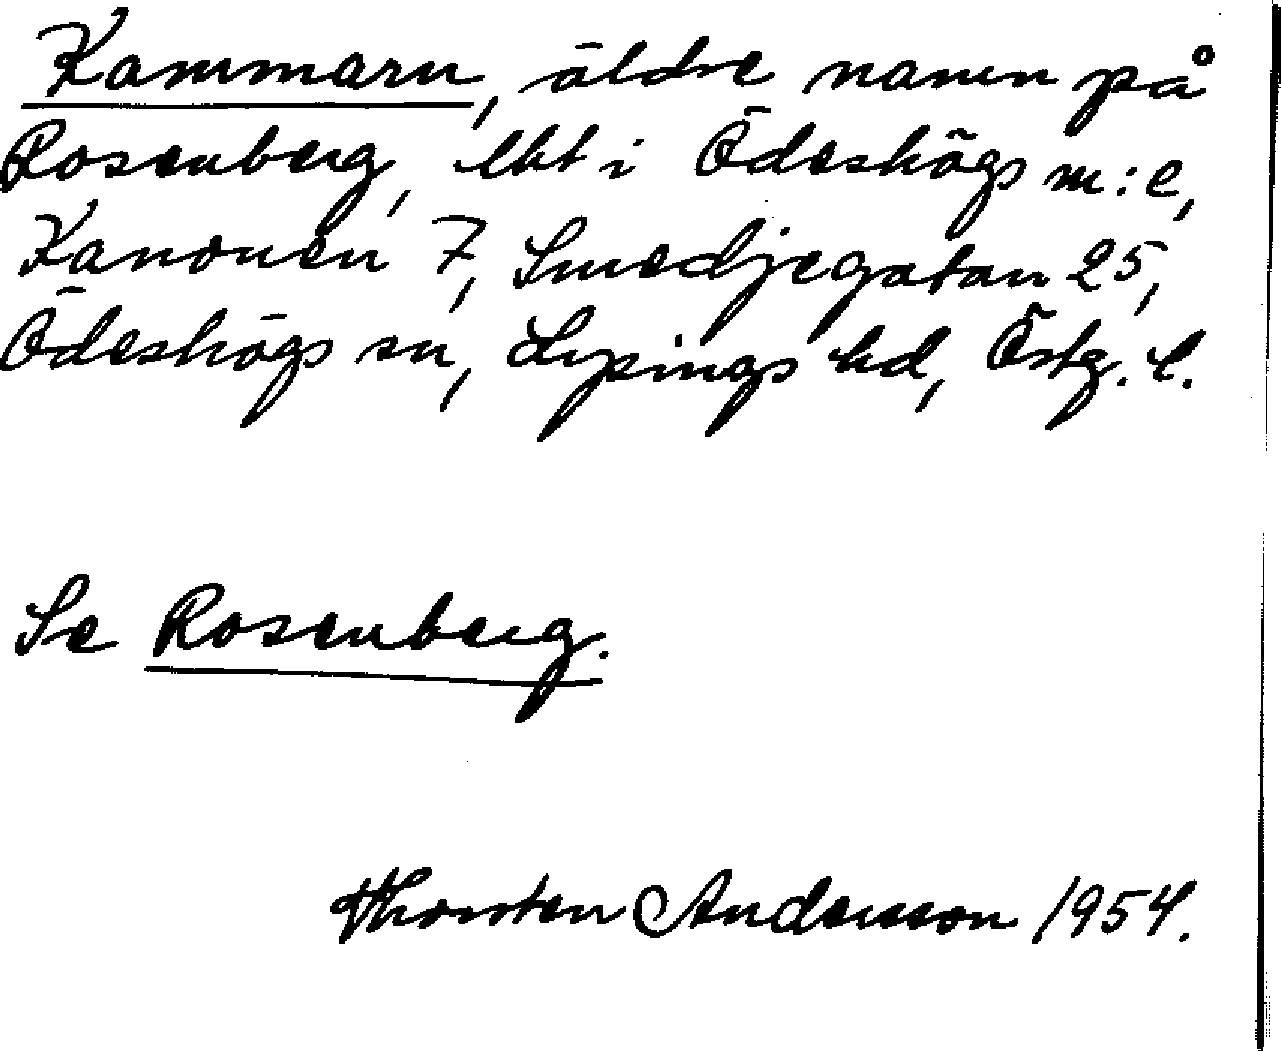 Kammarn, äldre namn på
Rosenberg, lht i Ödeshögs m:e,
Kanonen 7, Smedjegatan 25,
Ödeshögs sn, Lysings hd, Östg. l.
Se Rosenberg.
Thorsten Andersson 1954.